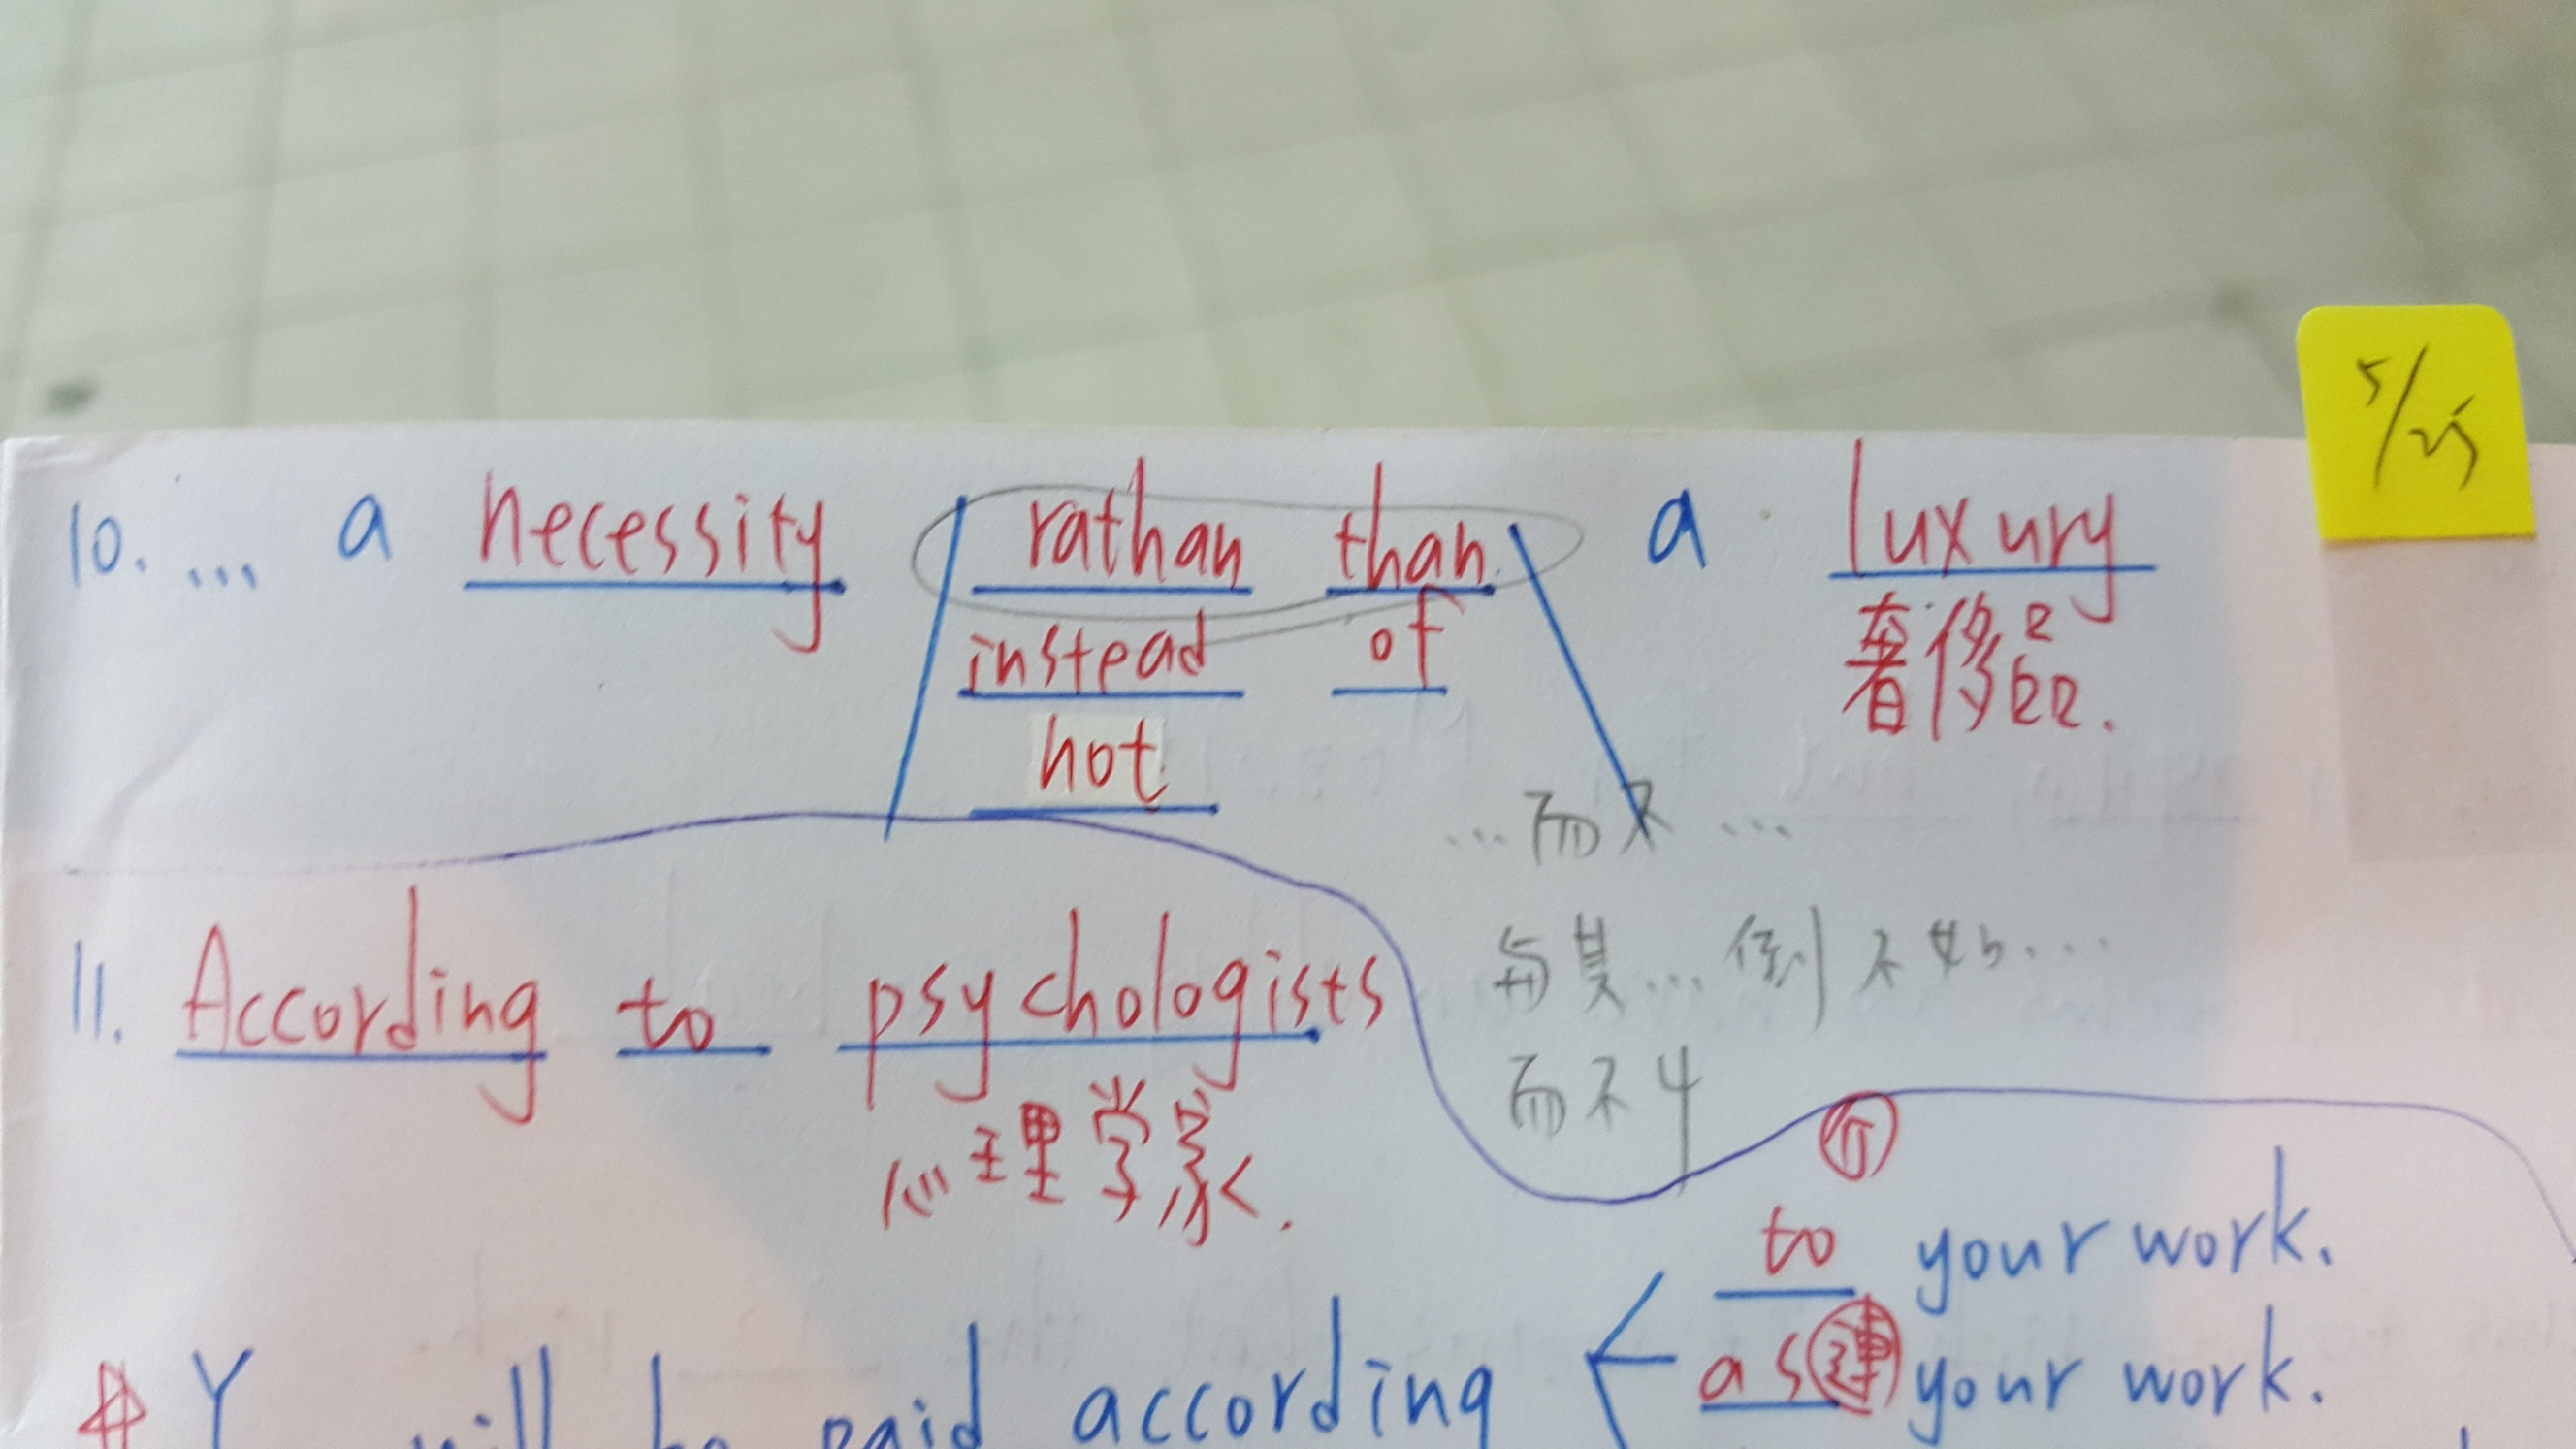 5/25
10. ... a necessity rathan than a luxury
instead of
奢侈品.
not
...而不...
11. According to psychologists
与其...倒不如...
而不
心理学家.
介
to your work.
will be paid according
as連 your work.